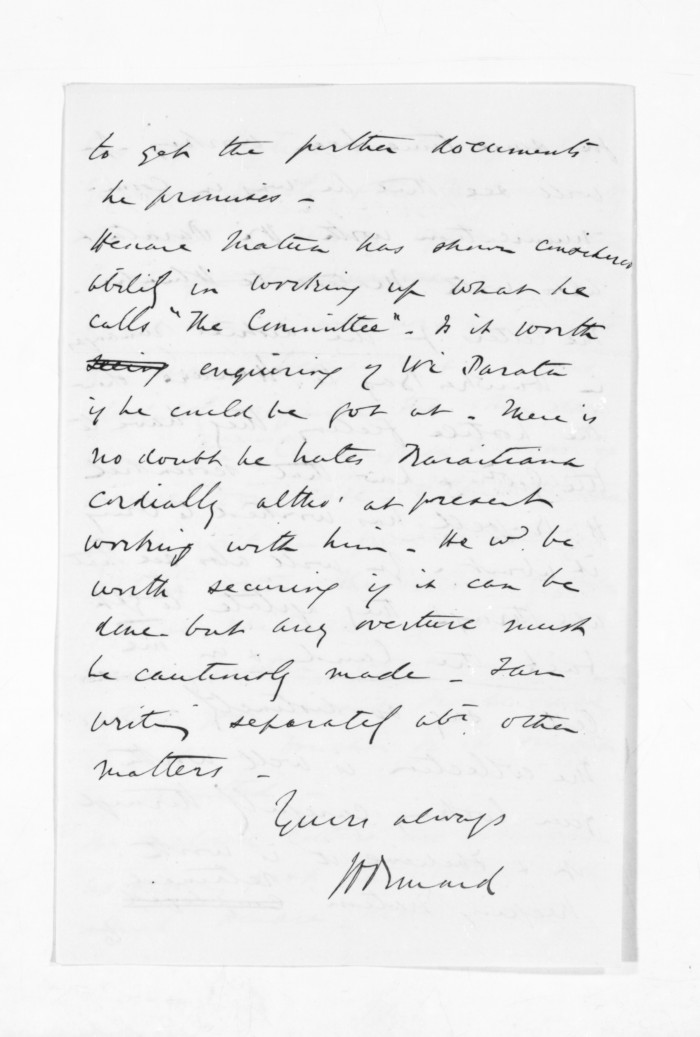 to get the further documents
he promises -
Henare Matua has shown considerable
ability in working up what he
calls "The Committee". Is it worth
seeing enquiring of Wi Parata
if he could be got at - There is
no doubt he hates Karaitiana
cordially altho' at present
working with him - He wd. be
worth securing if it can be
done - but any overture must
be cautiously made - I am
writing separately abt. other
matters -
Yours always
JD Ormond